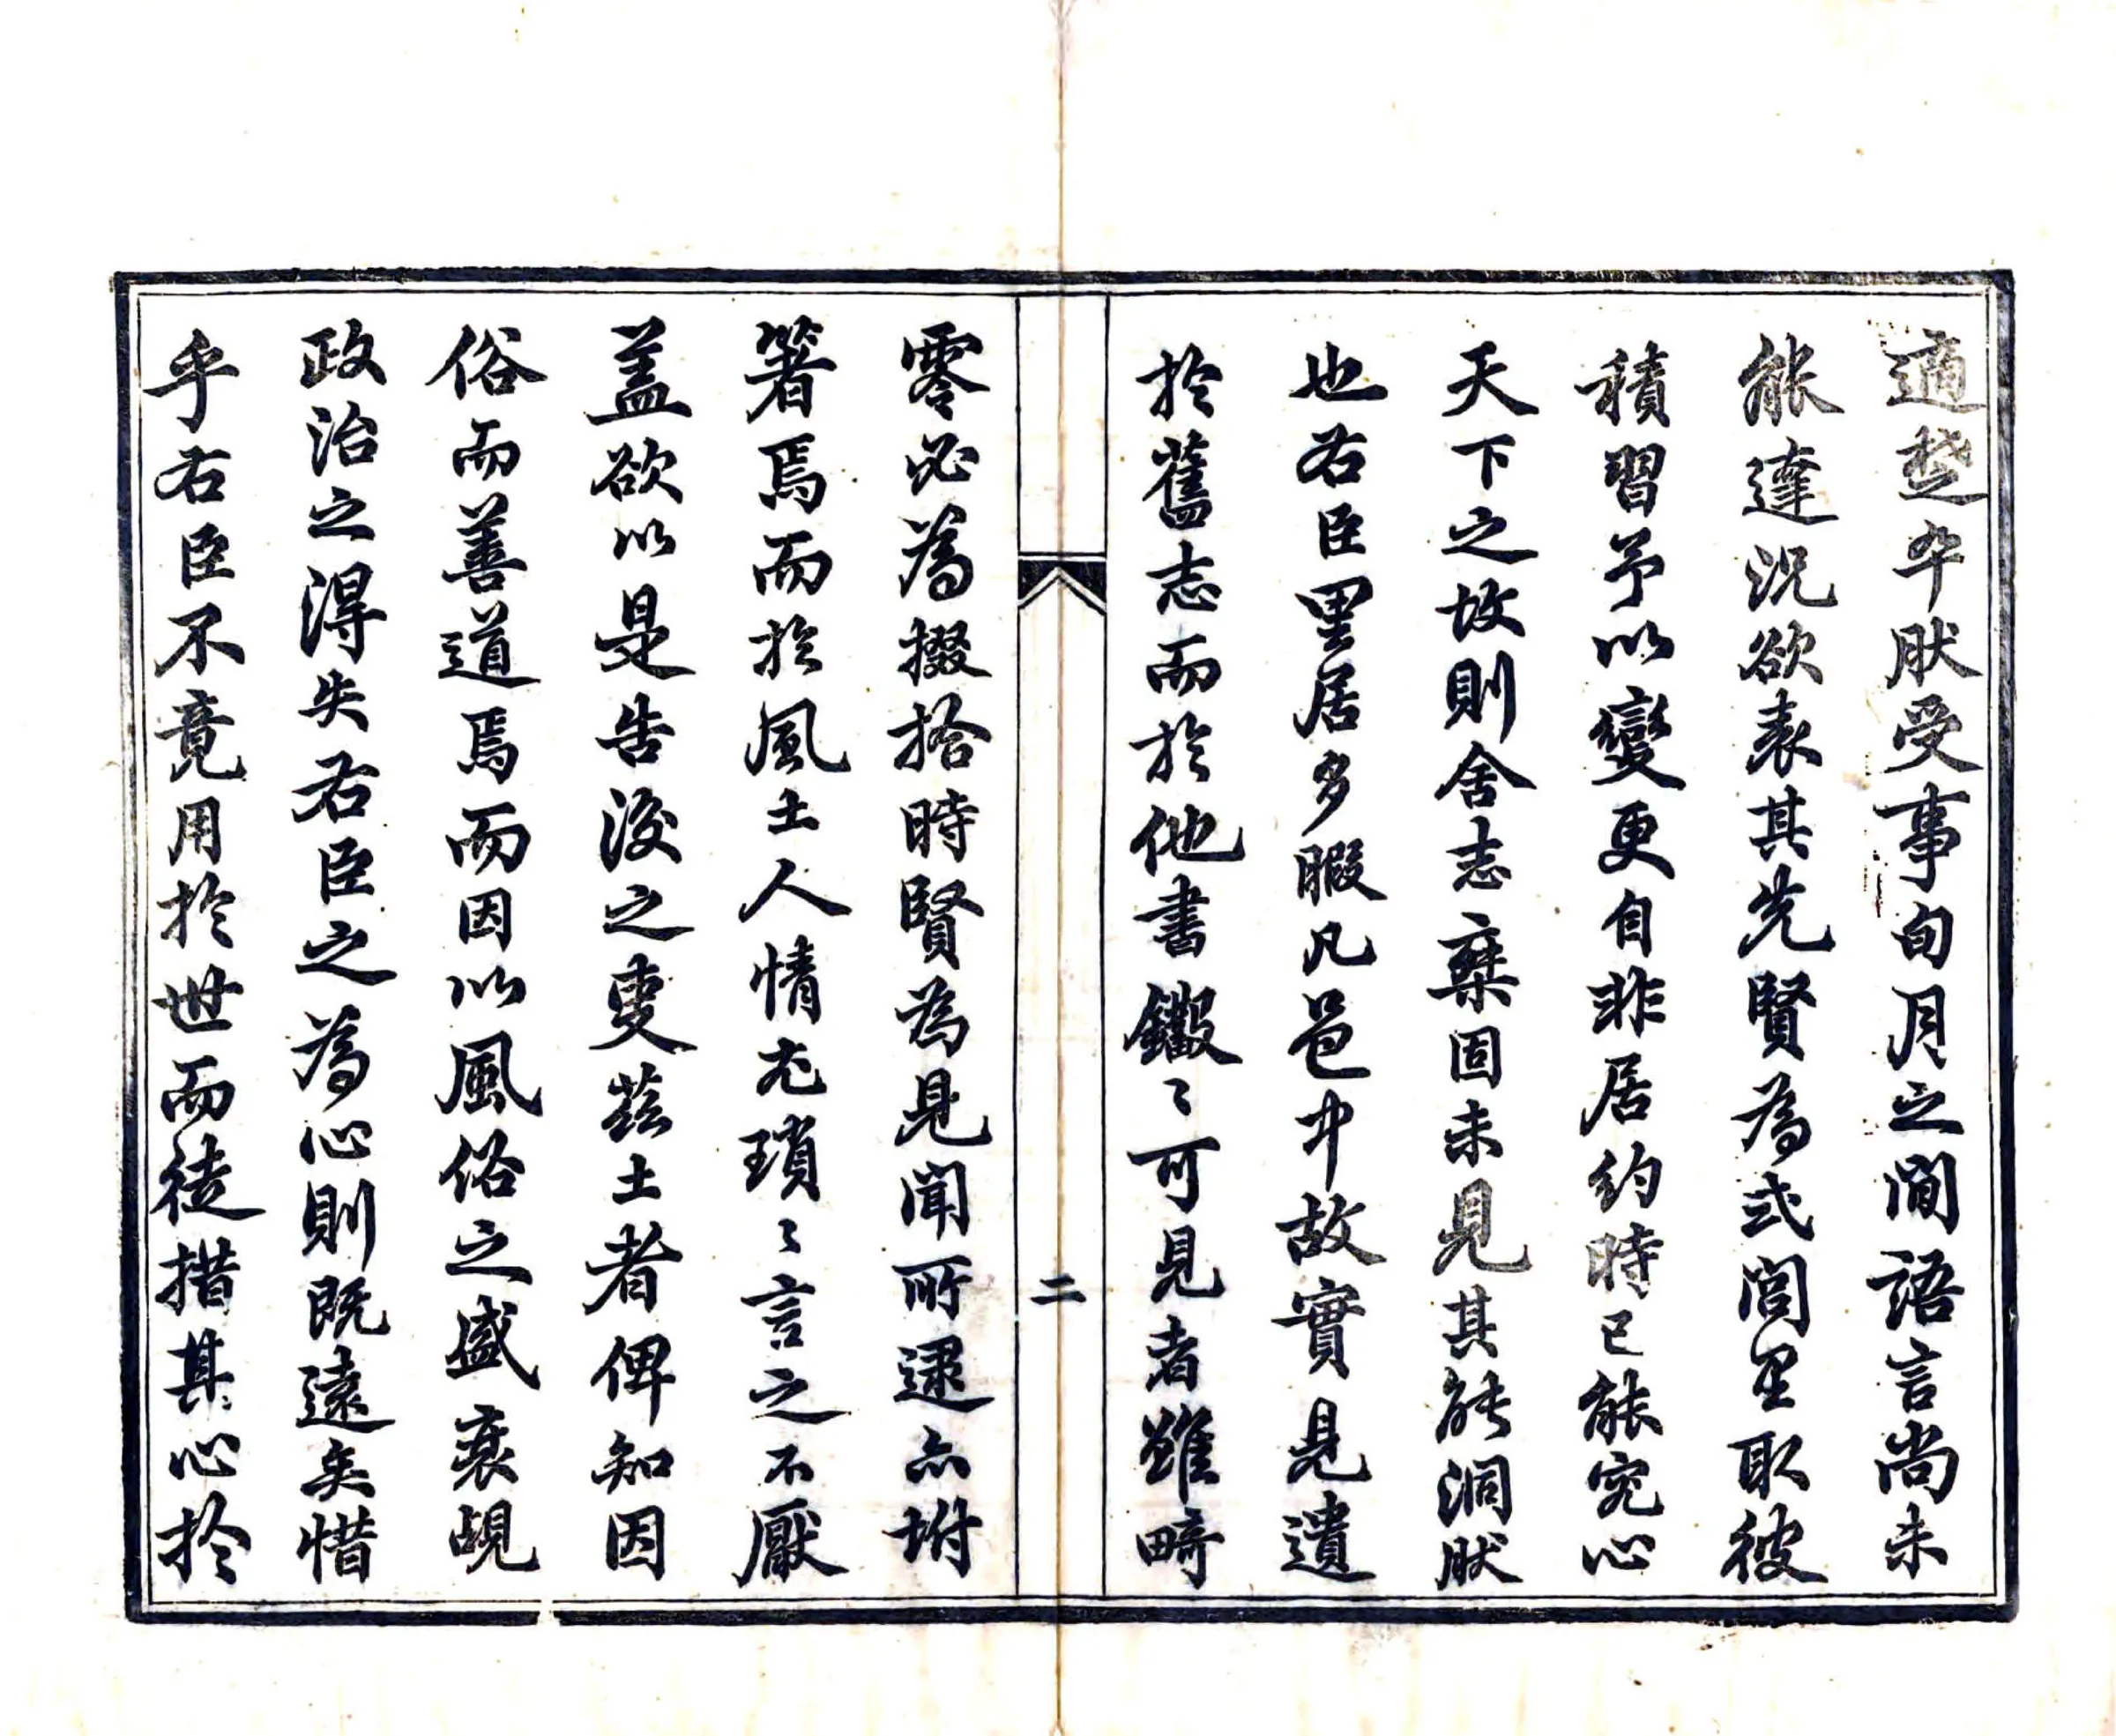 適楚卒肰受事旬月之間語言尚未
能達況欲表其先賢為式閭里取彼
積習予以變更自非居約時已能究心
天下之故則舍志棄固未見其能洞肰
也右臣里居多暇凡邑中故實見遺
於舊志而於他書鑿〻可見者雖畸
零必為掇拾時賢為見聞所逮亦坿
箸焉而於風土人情尤瑣〻言之不厭
蓋欲以是告後之吏茲土者俾知因
俗而善道焉而因以風俗之盛衰覘
政治之得失右臣之為心則既遠矣惜
乎右臣不竟用於世而徒措其心於
二